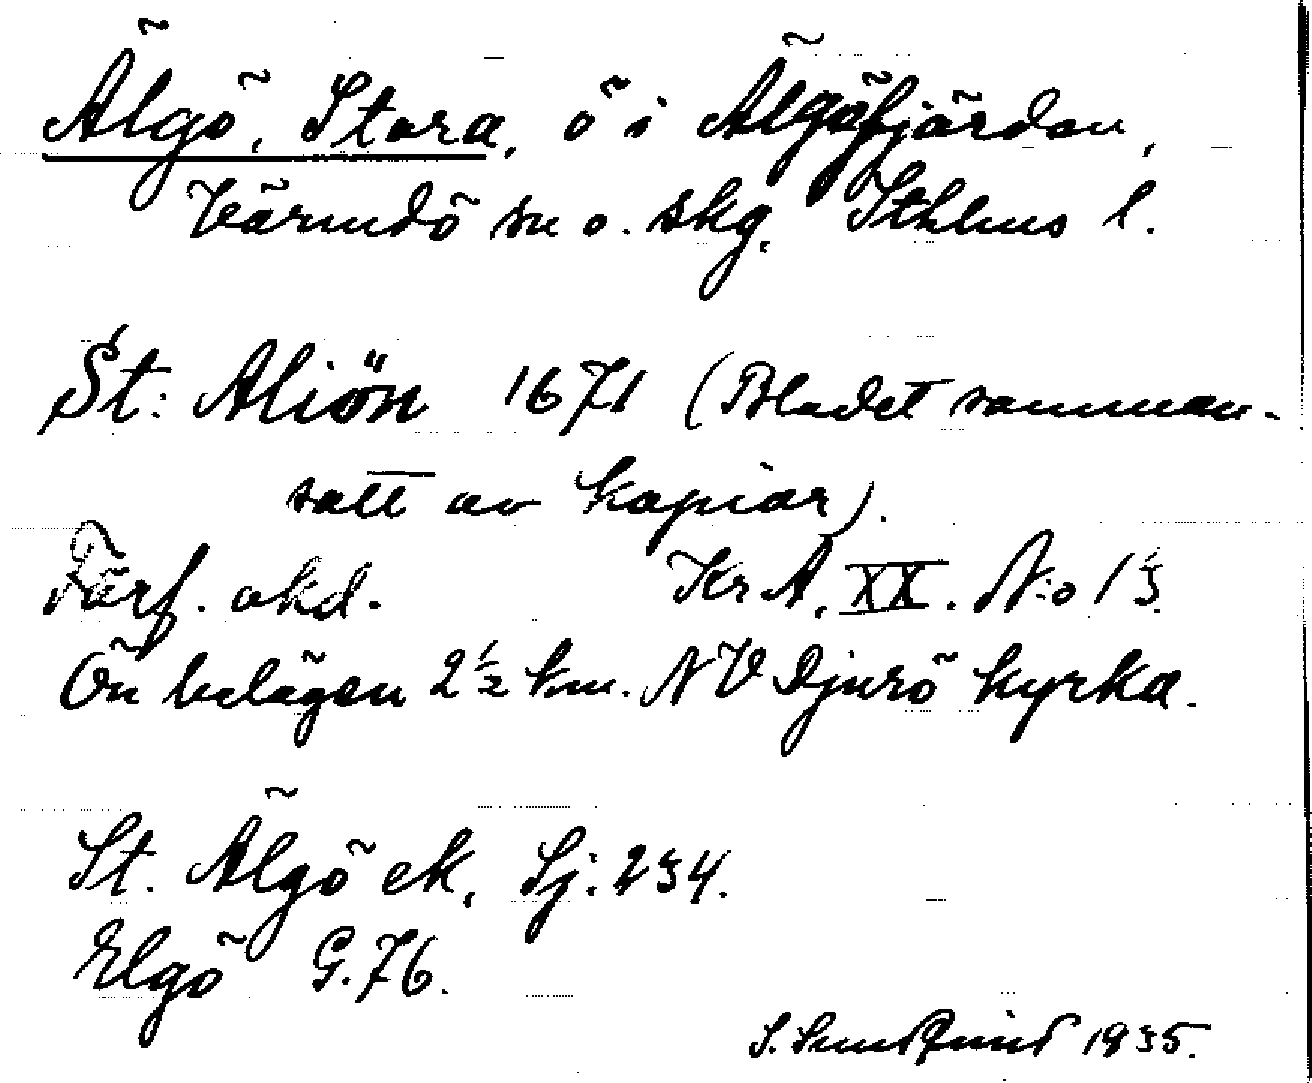 Älgö, Stora, ö i Älgöfjärden,
Värmdö sn o. skg. Sthlms l.
St: Aliön 1671 (Bladet samman-
satt av kopior).
Förf. okd. Kr A, XX. N:o 13.
Ön belägen 2 1/2 km. NV Djurö kyrka.
St. Älgö ek. Sj: 234.
Elgö G. 76.
S. Sundqvist 1935.